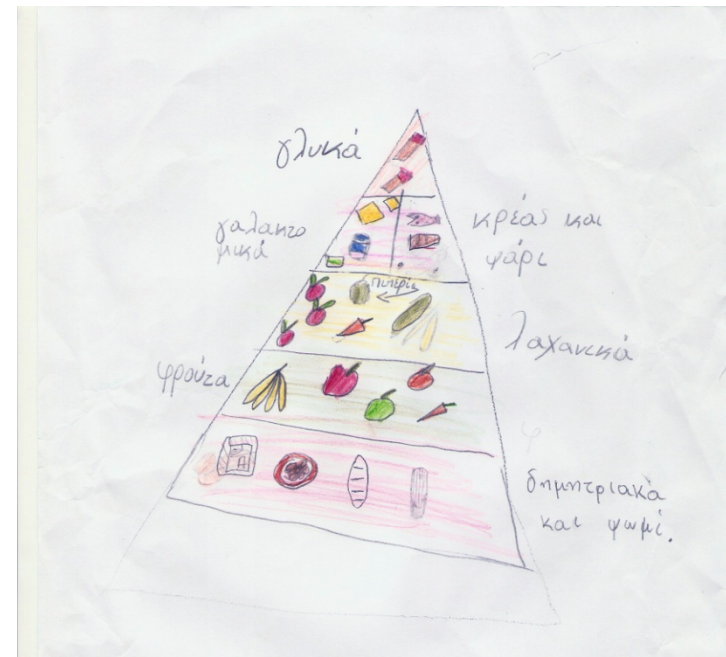 γλυκά
γαλακτο
μικά
κρέας και
ψάρι
πιπερι
λαχανικά
φρούτα
φ
δημητριακά
και ψωμί.